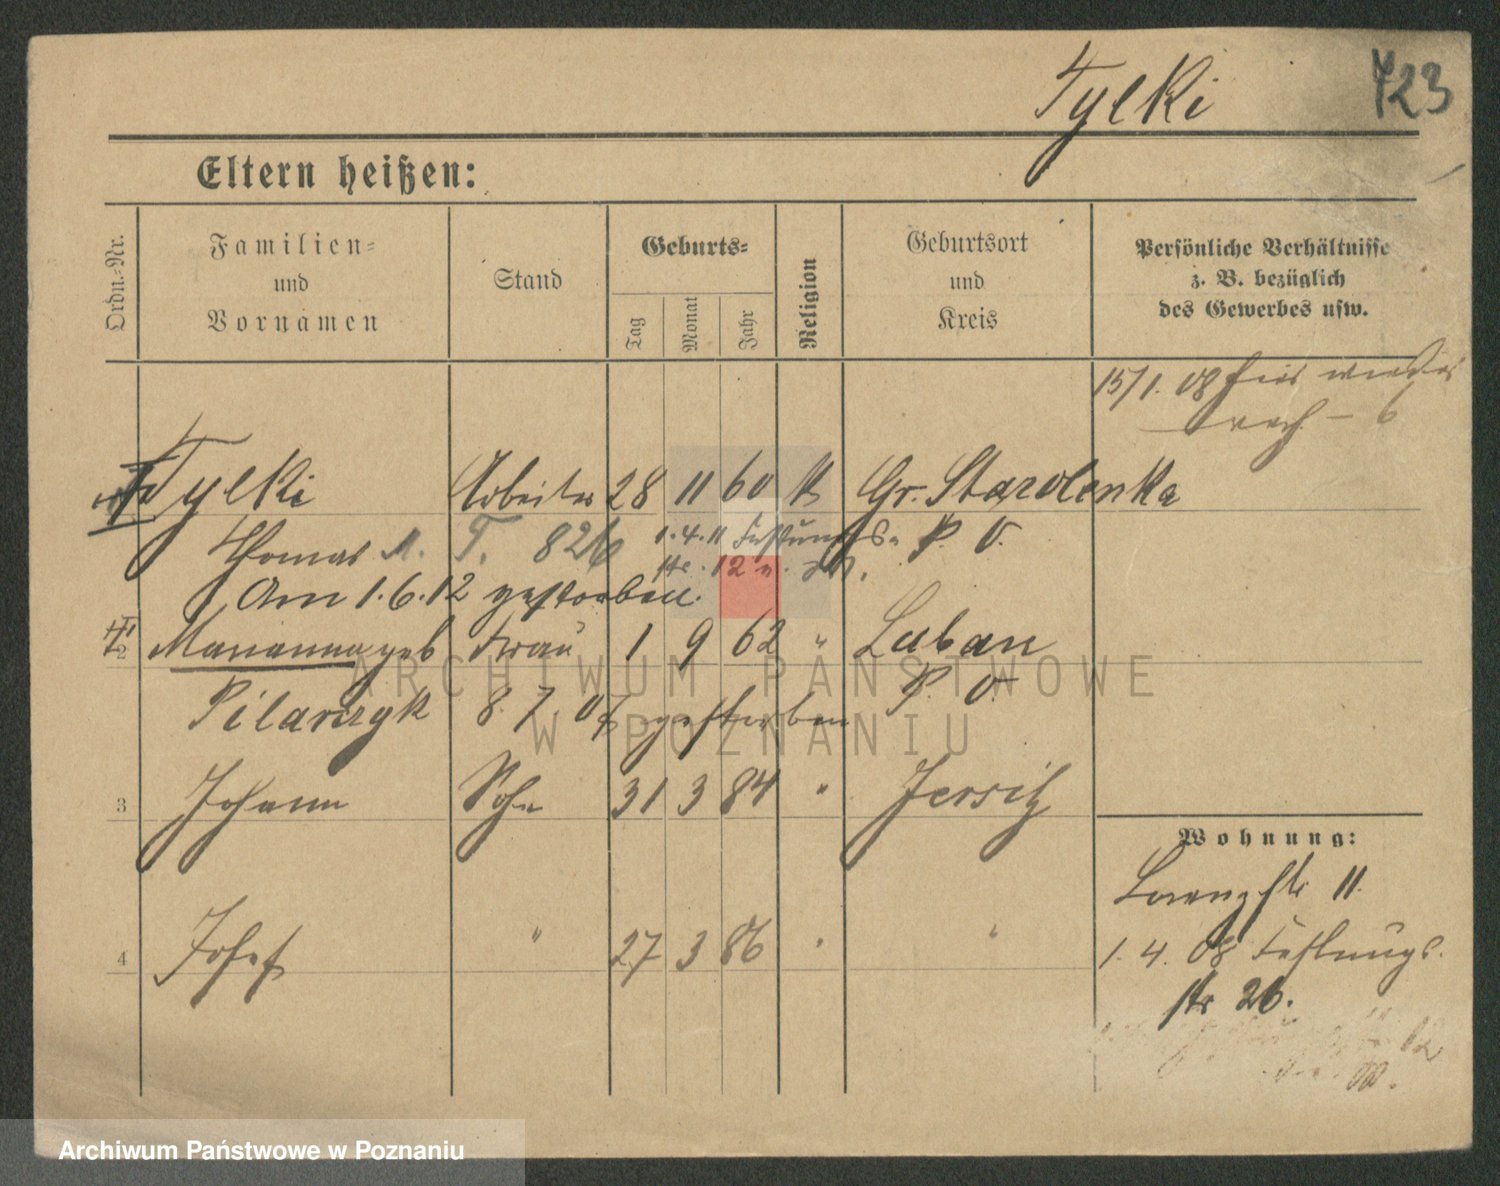 Tylki 723
Eltern heißen:
Ordn.-Nr.
Familien-
und
Vornamen
Stand
Geburts-
Tag
Monat
Jahr
Religion
Geburtsort
und
Kreis
Persönliche Verhältnisse
z. B. bezüglich
des Gewerbes usw.
15/1. 08
Tylki Arbeiter 28 11 60 K Gr. Starolenka
Thomas M. T. 826 1.4.11 Festungs- P. O.
str. 12
Am 1.6.12 gestorben.
2 Marianna geb Frau 1 9 62 " Luban
Pilarczyk 8.7.07 gestorben P. O.
3 Johann Sohn 31 3 84 " Jersitz
Wohnung:
Lorenzstr 11.
4 Josef " 27 3 86 " "
1. 4. 08 Festungs-
str 26.
ARCHIWUM PAŃSTWOWE
W POZNANIU
Archiwum Państwowe w Poznaniu